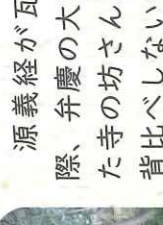 源義経が瓦
際、弁慶の大
た寺の坊さん
背比べしない